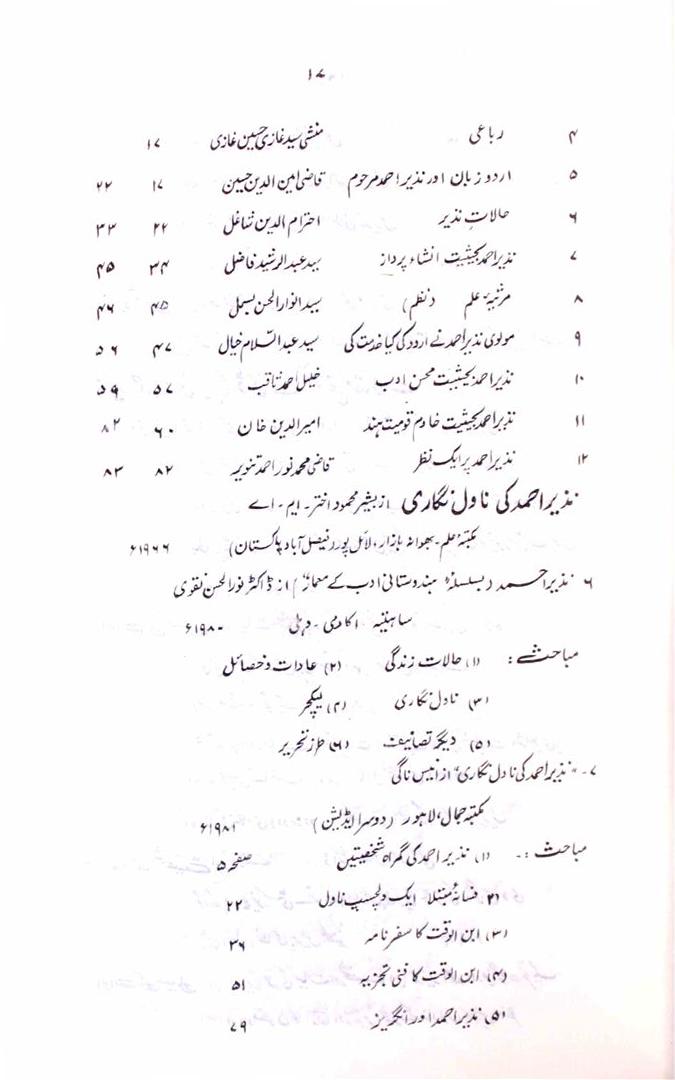 ۱۷
۴ رباعی منشی سید غازی حسین غازی ۱۷
۵ اردو زبان اور نذیر احمد مرحوم قاضی امین الدین حسین ۱۷ ۲۲
۶ حالاتِ نذیر احترام الدین شاغل ۲۲ ۳۳
۷ نذیر احمد بحیثیت انشاء پرداز سید عبدالرشید فاضل ۳۴ ۴۵
۸ مرثیۂ علم (نظم) سید انوار الحسن بسمل ۴۵ ۴۶
۹ مولوی نذیر احمد نے اردو کی کیا خدمت کی سید عبدالسلام خیال ۴۷ ۵۶
۱۰ نذیر احمد بحیثیت محسن ادب خلیل احمد ثاقب ۵۷ ۵۹
۱۱ نذیر احمد بحیثیت خادم قومیت ہند امیر الدین خان ۶۰ ۸۲
۱۲ نذیر احمد پر ایک نظر قاضی محمد نور احمد تنویر ۸۲ ۸۳
نذیر احمد کی ناول نگاری از بشیر محمود اختر۔ ایم۔ اے
مکتبۂ علم۔ بھوانہ بازار، لائل پور (فیصل آباد پاکستان) ۱۹۶۶ء
۶ نذیر احمد (بسلسلۂ ہندوستانی ادب کے معمار) از ڈاکٹر نور الحسن نقوی
ساہتیہ اکادمی۔ دہلی ۱۹۸۰ء
مباحث: (۱) حالات زندگی (۲) عادات و خصائل
(۳) ناول نگاری (۴) لیکچر
(۵) دیگر تصانیف (۶) طرز تحریر
۷۔ "نذیر احمد کی ناول نگاری" از انیس ناگی
مکتبہ جمال، لاہور (دوسرا ایڈیشن) ۱۹۸۱ء
مباحث:۔ (۱) نذیر احمد کی گمراہ شخصیتیں صفحہ ۵
(۲) فسانۂ مبتلا ایک دلچسپ ناول ۲۲
(۳) ابن الوقت کا سفر نامہ ۳۶
(۴) ابن الوقت کا فنی تجزیہ ۵۱
(۵) نذیر احمد اور انگریز ۷۹